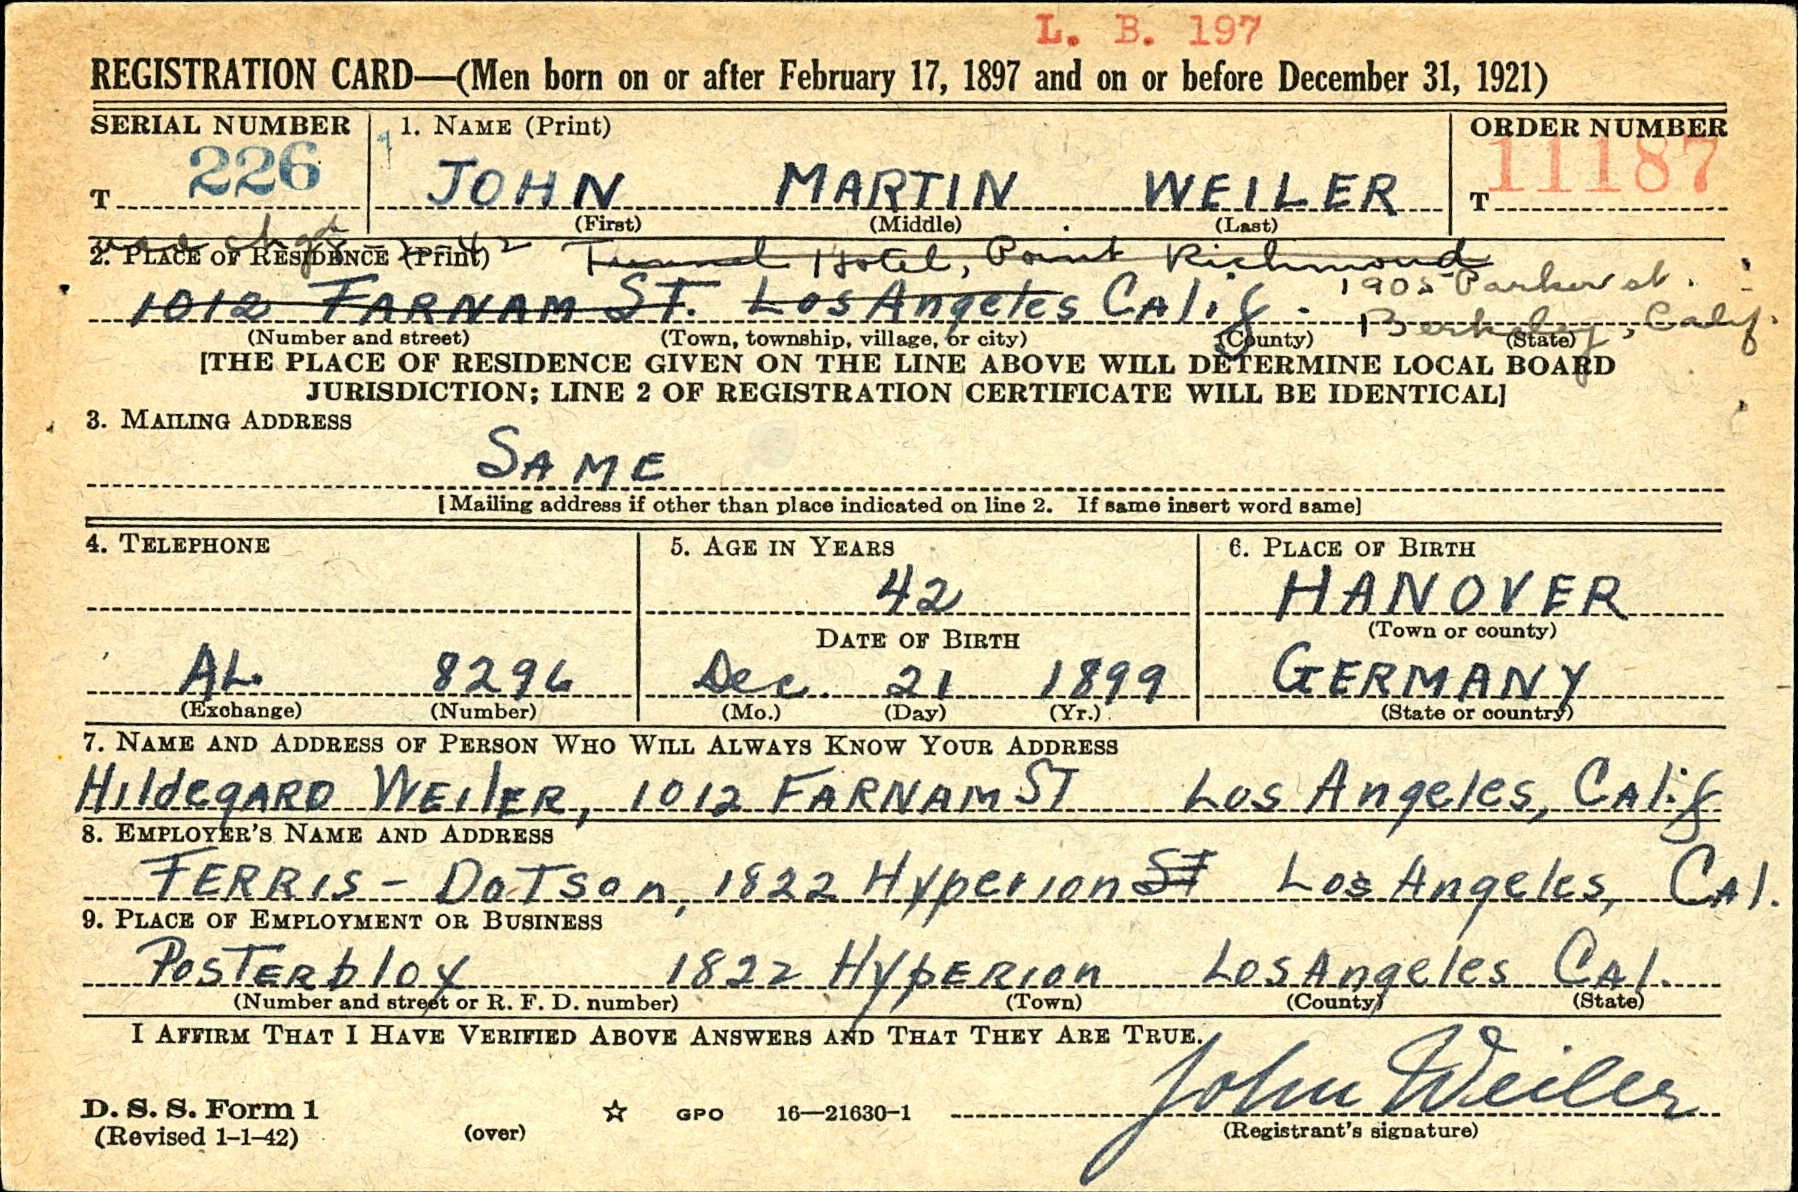 L. B. 197
REGISTRATION CARD—(Men born on or after February 17, 1897 and on or before December 31, 1921)
SERIAL NUMBER 1. NAME (Print) ORDER NUMBER
T 226 JOHN MARTIN WEILER T 11187
(First) (Middle) (Last)
Hotel, Point Richmond
2. PLACE OF RESIDENCE (Print)
1905 Parker st.
1012 FARNAM ST. Los Angeles CAlif. Berkeley, Calif.
(Number and street) (Town, township, village, or city) (County) (State)
[THE PLACE OF RESIDENCE GIVEN ON THE LINE ABOVE WILL DETERMINE LOCAL BOARD
JURISDICTION; LINE 2 OF REGISTRATION CERTIFICATE WILL BE IDENTICAL]
3. MAILING ADDRESS
SAME
[Mailing address if other than place indicated on line 2. If same insert word same]
4. TELEPHONE 5. AGE IN YEARS 6. PLACE OF BIRTH
42 HANOVER
DATE OF BIRTH (Town or county)
AL. 8296 Dec. 21 1899 GERMANY
(Exchange) (Number) (Mo.) (Day) (Yr.) (State or country)
7. NAME AND ADDRESS OF PERSON WHO WILL ALWAYS KNOW YOUR ADDRESS
HildegARD WEilER, 1012 FARNAM ST Los Angeles, CAlif
8. EMPLOYER'S NAME AND ADDRESS
FERRIS - DoTson, 1822 Hyperion St Los Angeles, CAl.
9. PLACE OF EMPLOYMENT OR BUSINESS
PosTERblox 1822 HypERion Los Angeles CAl.
(Number and street or R. F. D. number) (Town) (County) (State)
I AFFIRM THAT I HAVE VERIFIED ABOVE ANSWERS AND THAT THEY ARE TRUE.
John Weiler
D. S. S. Form 1 ☆ GPO 16—21630-1
(Revised 1-1-42) (over) (Registrant's signature)